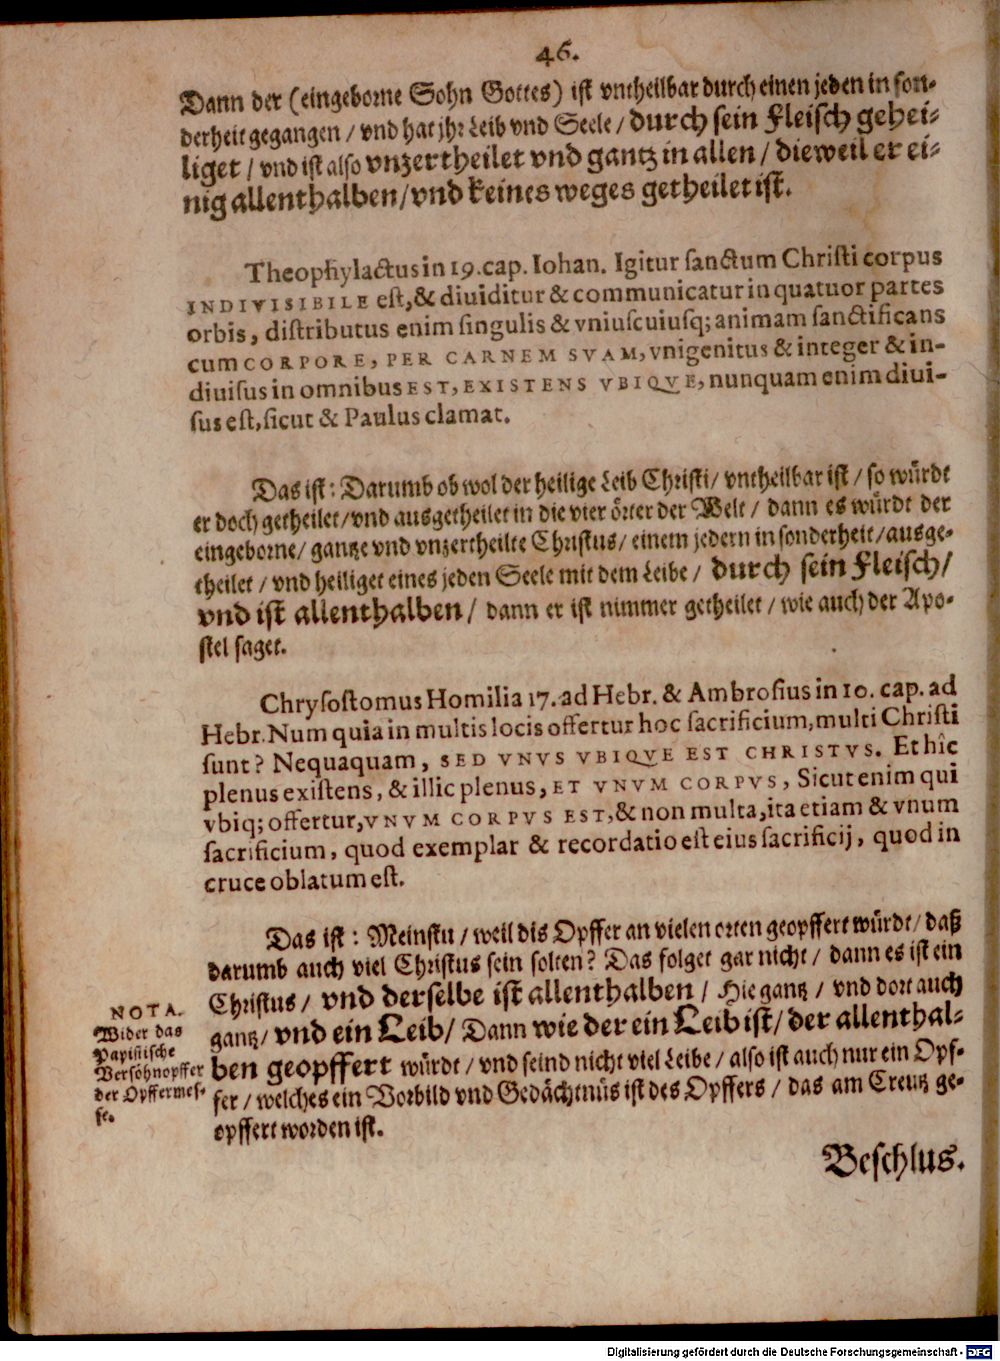 46.
Dann der (eingeborne Sohn Gottes) ist vntheilbar durch einen jeden in son-
derheit gegangen / vnd hat jhr Leib vnd Seele / durch sein Fleisch gehei-
liget / vnd ist also vnzertheilet vnd gantz in allen / dieweil er ei-
nig allenthalben/vnd keines weges getheilet ist.
Theophylactus in 19.cap. Iohan. Igitur sanctum Christi corpus
INDIVISIBILE est,& diuiditur & communicatur in quatuor partes
orbis, distributus enim singulis & vniuscuiusq; animam sanctificans
cum CORPORE, PER CARNEM SVAM, vnigenitus & integer & in-
diuisus in omnibus EST, EXISTENS VBIQVE, nunquam enim diui-
sus est, sicut & Paulus clamat.
Das ist : Darumb ob wol der heilige Leib Christi/ vntheilbar ist / so würdt
er doch getheilet/vnd ausgetheilet in die vier örter der Welt / dann es würdt der
eingeborne/ gantze vnd vnzertheilte Christus/ einem jedern in sonderheit/ausge-
theilet / vnd heiliget eines jeden Seele mit dem Leibe / durch sein Fleisch/
vnd ist allenthalben / dann er ist nimmer getheilet / wie auch der Apo-
stel saget.
Chrysostomus Homilia 17. ad Hebr. & Ambrosius in 10. cap. ad
Hebr. Num quia in multis locis offertur hoc sacrificium, multi Christi
sunt? Nequaquam, SED VNVS VBIQVE EST CHRISTVS. Et hîc
plenus existens, & illic plenus, ET VNVM CORPVS, Sicut enim qui
vbiq; offertur, VNVM CORPVS EST, & non multa, ita etiam & vnum
sacrificium, quod exemplar & recordatio est eius sacrificij, quod in
cruce oblatum est.
Das ist : Meinstu / weil dis Opffer an vielen orten geopffert würdt/ daß
darumb auch viel Christus sein solten? Das folget gar nicht / dann es ist ein
Christus / vnd derselbe ist allenthalben / Hie gantz / vnd dort auch
gantz/ vnd ein Leib/ Dann wie der ein Leib ist/ der allenthal-
ben geopffert würdt / vnd seind nicht viel Leibe / also ist auch nur ein Opf-
fer / welches ein Vorbild vnd Gedächtnüs ist des Opffers / das am Creutz ge-
opffert worden ist.
NOTA.
Wider das
Papistische
Versöhnopffer
der Opffermes-
se.
Beschlus.
Digitalisierung gefördert durch die Deutsche Forschungsgemeinschaft - DFG